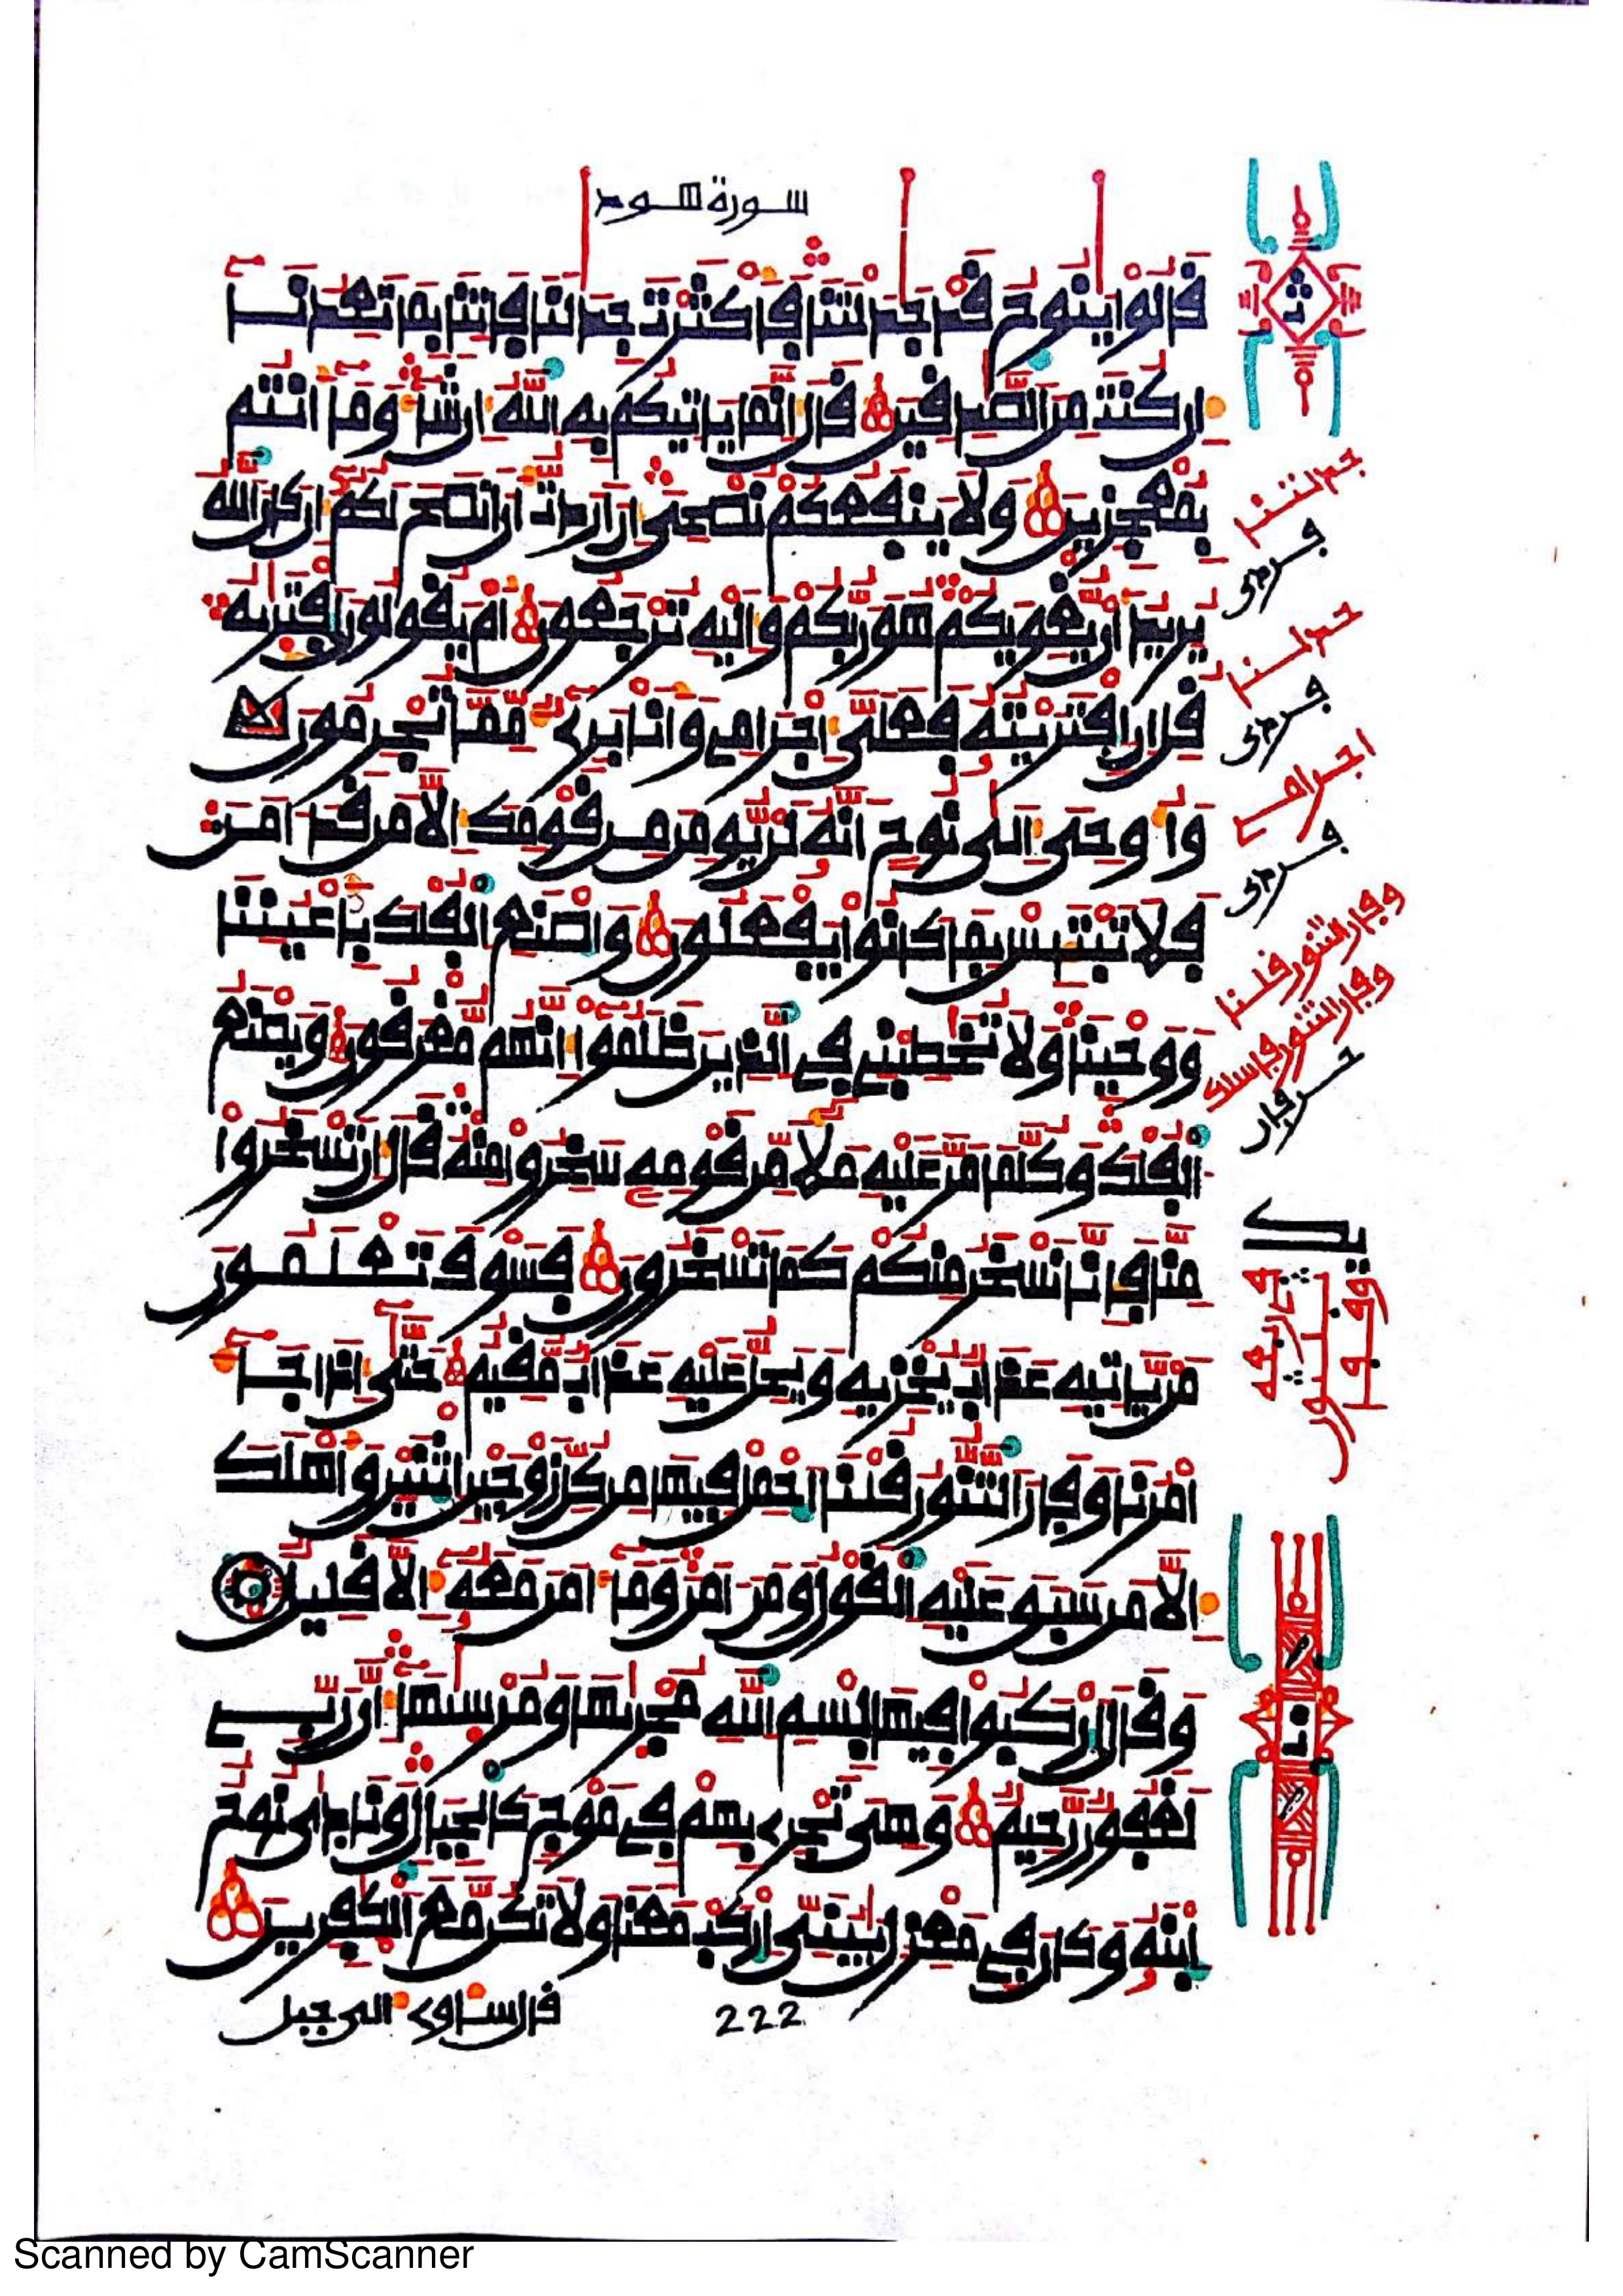 سورة هود
قالوا ينوح قد جدلتنا فأكثرت جدلنا فاتنا بما تعدنا
إن كنت من الصدقين قال إنما ياتيكم به الله إن شا وما أنتم
بمعجزين ولا ينفعكم نصحي إن اردت أن انصح لكم إن كان الله
يريد أن يغويكم هو ربكم وإليه ترجعون أم يقولون افتريه
قل إن افتريته فعلي إجرامي وأنا بري مما تجرمون
وأوحي إلى نوح أنه لن يومن من قومك إلا من قد امن
فلا تبتئس بما كانوا يفعلون واصنع الفلك بأعيننا
ووحينا ولا تخطبني في الذين ظلموا إنهم مغرقون ويصنع
الفلك وكلما مر عليه ملأ من قومه سخروا منه قال إن تسخروا
منا فإنا نسخر منكم كما تسخرون فسوف تعلمون
من ياتيه عذاب يخزيه ويحل عليه عذاب مقيم حتى إذا جا
امرنا وفار التنور قلنا احمل فيها من كل زوجين اثنين وأهلك
إلا من سبق عليه القول ومن امن وما امن معه إلا قليل
وقال اركبوا فيها بسم الله مجريها ومرسيها إن ربي
لغفور رحيم وهي تجري بهم في موج كالجبال ونادى نوح
ابنه وكان في معزل يبني اركب معنا ولا تكن مع الكفرين
قال ساوي إلى جبل
222
جدلتنا
جدلنا
اجرامي
وفار التنور قلنا
وفار التنور فاسلك
Scanned by CamScanner